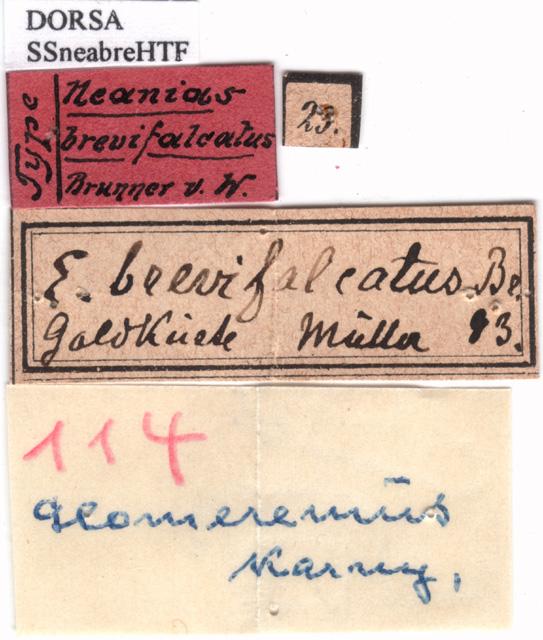 DORSA
SSneabreHTF
Type
Neanias
brevifalcatus
Brunner v. W.
23.
E. brevifalcatus Br.
Goldküste Müller 93.
114
Glomeremüs
Karny,